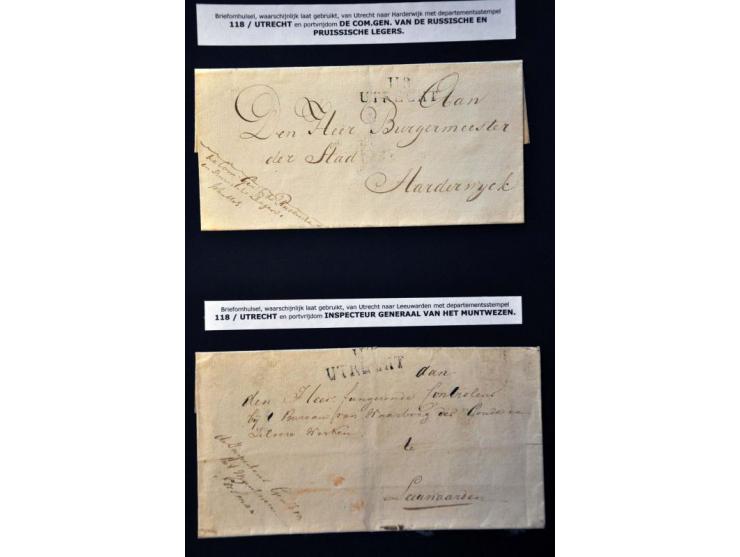 Briefomhulsel, waarschijnlijk laat gebruikt, van Utrecht naar Harderwijk met departementsstempel
118 / UTRECHT en portvrijdom DE COM.GEN. VAN DE RUSSISCHE EN
PRUISSISCHE LEGERS.
118
UTRECHT
Aan
Den Heer Burgermeester
der Stad
Harderwyck
Briefomhulsel, waarschijnlijk laat gebruikt, van Utrecht naar Leeuwarden met departementsstempel
118 / UTRECHT en portvrijdom INSPECTEUR GENERAAL VAN HET MUNTWEZEN.
UTRECHT
aan
den Heer fungerende Controleur
bij 't Bureau van Waarborg der Goude en
Zilvere Werken
te
Leeuwaarden